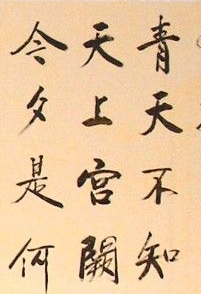 青天不知
天上宮闕
今夕是何